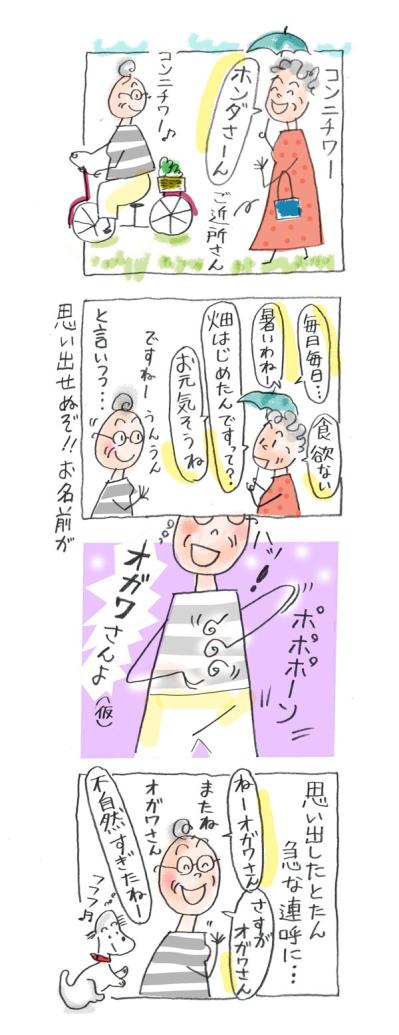 コンニチワー
ホンダさーん
コンニチワー♪
ご近所さん
毎日毎日…
暑いわねー
食欲ない
畑はじめたんですって?
お元気そうね
ですねー うんうん
と言いつつ…
思い出せぬぞ!!お名前が
!
ポポポーン
オガワさんよ
(仮)
思い出したとたん
急な連呼に…
ねーオガワさん
さすが
オガワさん
またね
オガワさん
不自然すぎたねー
フフフ♪